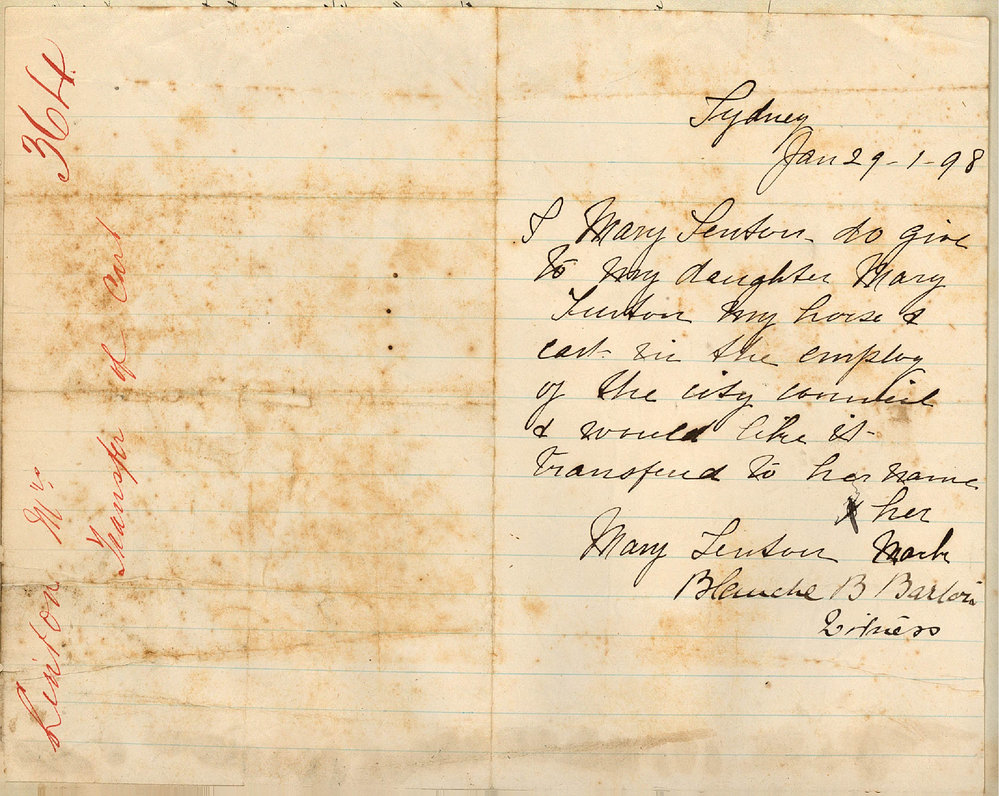 364
Linton Mrs
Transfer of Cart
Sydney
Jan 29-1-98
I Mary Lenton do give
to my daughter Mary
Lenton my horse &
cart in the employ
of the city council
& would like it
transferd to her name
x her
Mary Lenton Mark
Blanche B Barton
Witness